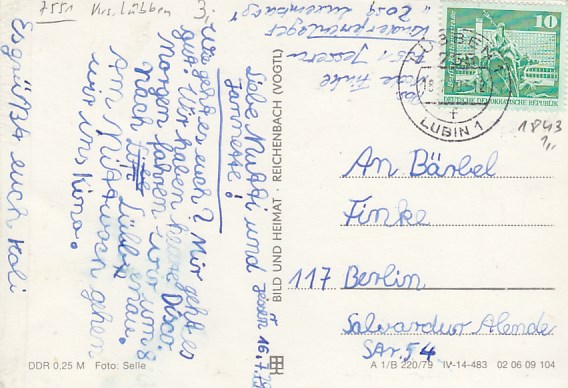 7551 Krs. Lübben
3,-
Jessen 16.7.79
Liebe Mutti und
Jannette!
Wie geht es euch? Mir geht es
gut. Wir haben heute Disco.
Morgen fahren wir
nach Lübbenau.
Am Mittwoch gehen
wir ins Kino.
Es grüßt euch Kati
Kinderferienlager
7551 Jessern
BILD UND HEIMAT · REICHENBACH (VOGTL)
10
DEUTSCHE DEMOKRATISCHE REPUBLIK
LÜBBEN
LUBIN 1
f
1843
1,,
An Bärbel
Finke
117 Berlin
Salvardur Alende
Sar. 54
DDR 0,25 M Foto: Selle
A 1/B 220/79 IV-14-483 02 06 09 104